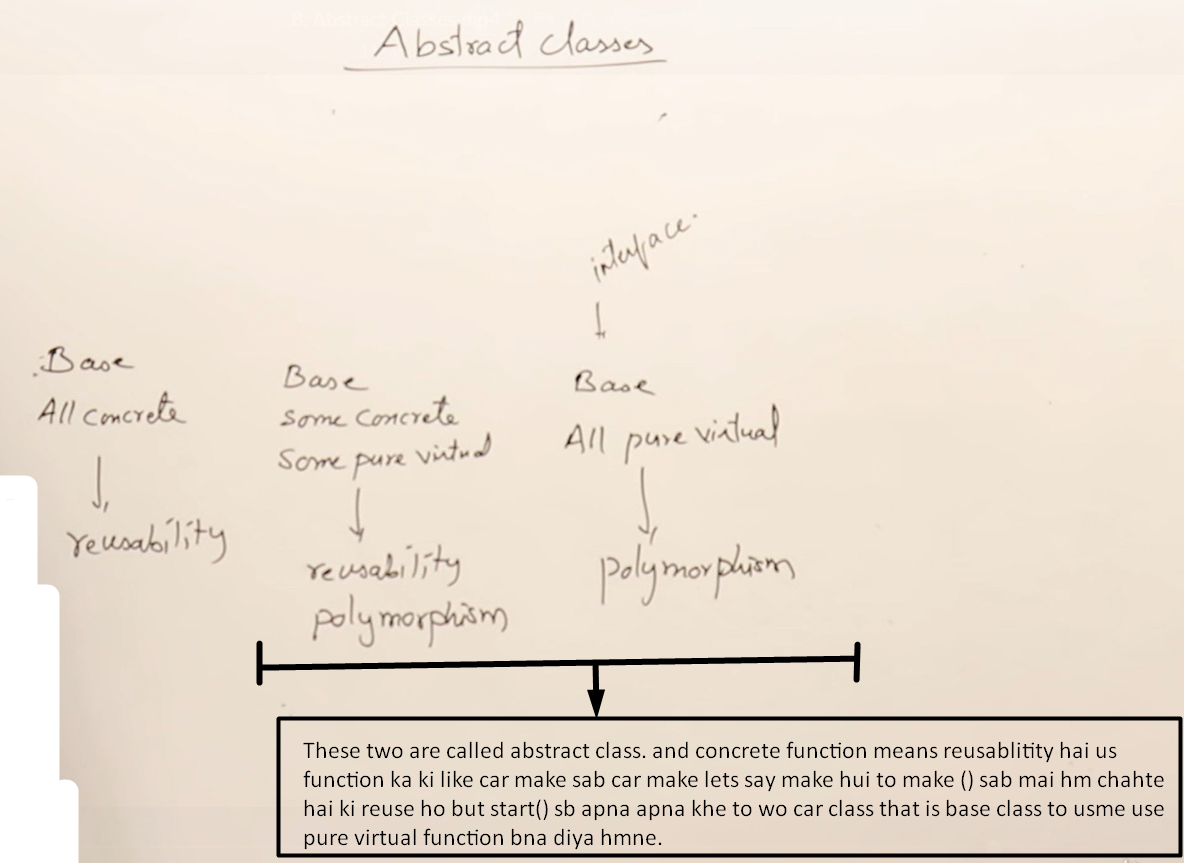 Abstract classes
interface.
Base
All concrete
reusability
Base
Some Concrete
Some pure virtual
reusability
polymorphism
Base
All pure virtual
polymorphism
These two are called abstract class. and concrete function means reusablitity hai us
function ka ki like car make sab car make lets say make hui to make () sab mai hm chahte
hai ki reuse ho but start() sb apna apna khe to wo car class that is base class to usme use
pure virtual function bna diya hmne.